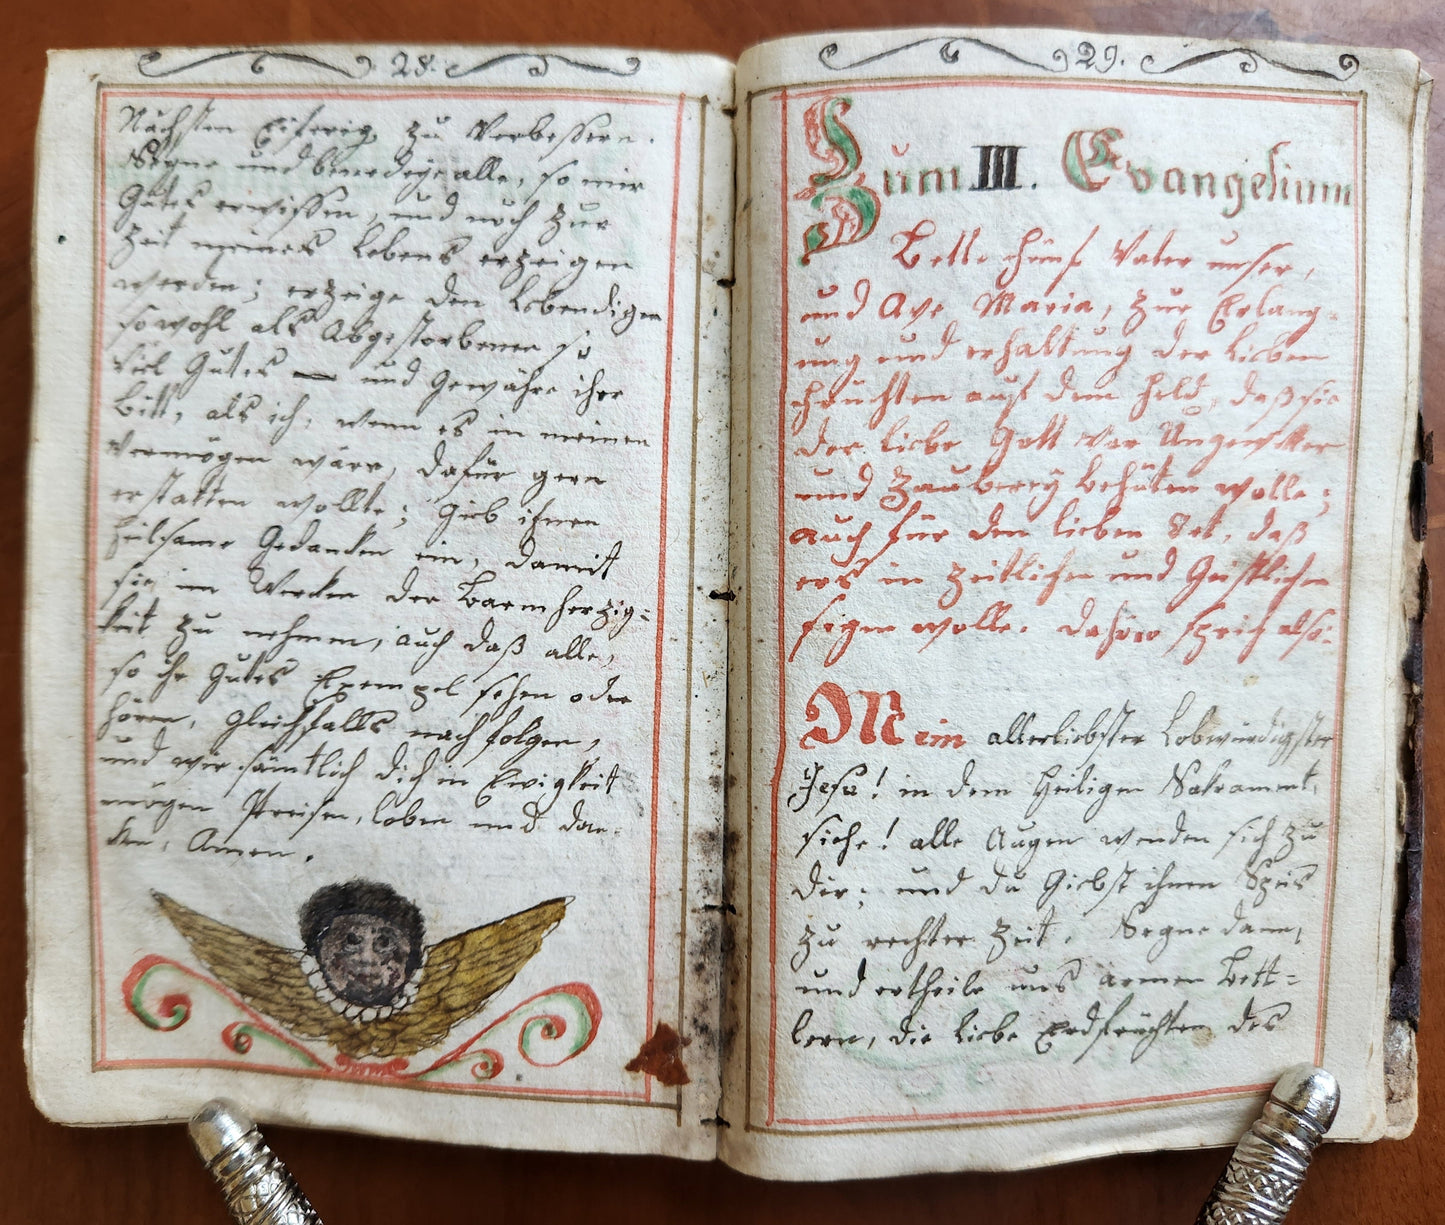 28.
Nächsten Eiferig zu Verbessern.
Segne und benedeye alle, so mir
Gutes erwissen, und noch zur
Zeit meines Lebens erzeigen
werden; erzeige den Lebendigen
sowohl als Abgestorbenen so
viel Gutes — und Gewähre ihr
bitt, als ich, wenn es in meinen
Vermögen wäre, dafür gern
erstatten wollte; gieb ihnen
heilsame Gedanken ein, damit
sie im Wercken der Barmherzig=
keit zu nehmen, auch daß alle,
so ihr gutes Exempel sehen oder
hören, gleichfalls nachfolgen,
und wir sämtlich dich in Ewigkeit
mögen Preisen, loben und dan-
ken, Amen.
29.
Zum III. Evangelium
Bette fünf Vater unser,
und Ave Maria, zur Erlang=
ung und erhaltung der lieben
früchten auf dem Feld, daß sie
der liebe Gott vor Ungewitter
und Zauberey behüten wolle;
auch für den lieben daß
ers in Zeitlichen und Geistlichen
segen wolle. Dafür sprich also:
Mein allerliebster Lobwürdigster
Jesu! in dem Heiligen Sakrament,
siehe! alle Augen wenden sich zu
dir; und du Giebst ihnen Speis
zu rechter Zeit. Segne dann,
und ertheile uns armen Bett=
lern, die liebe Erdfrüchten des